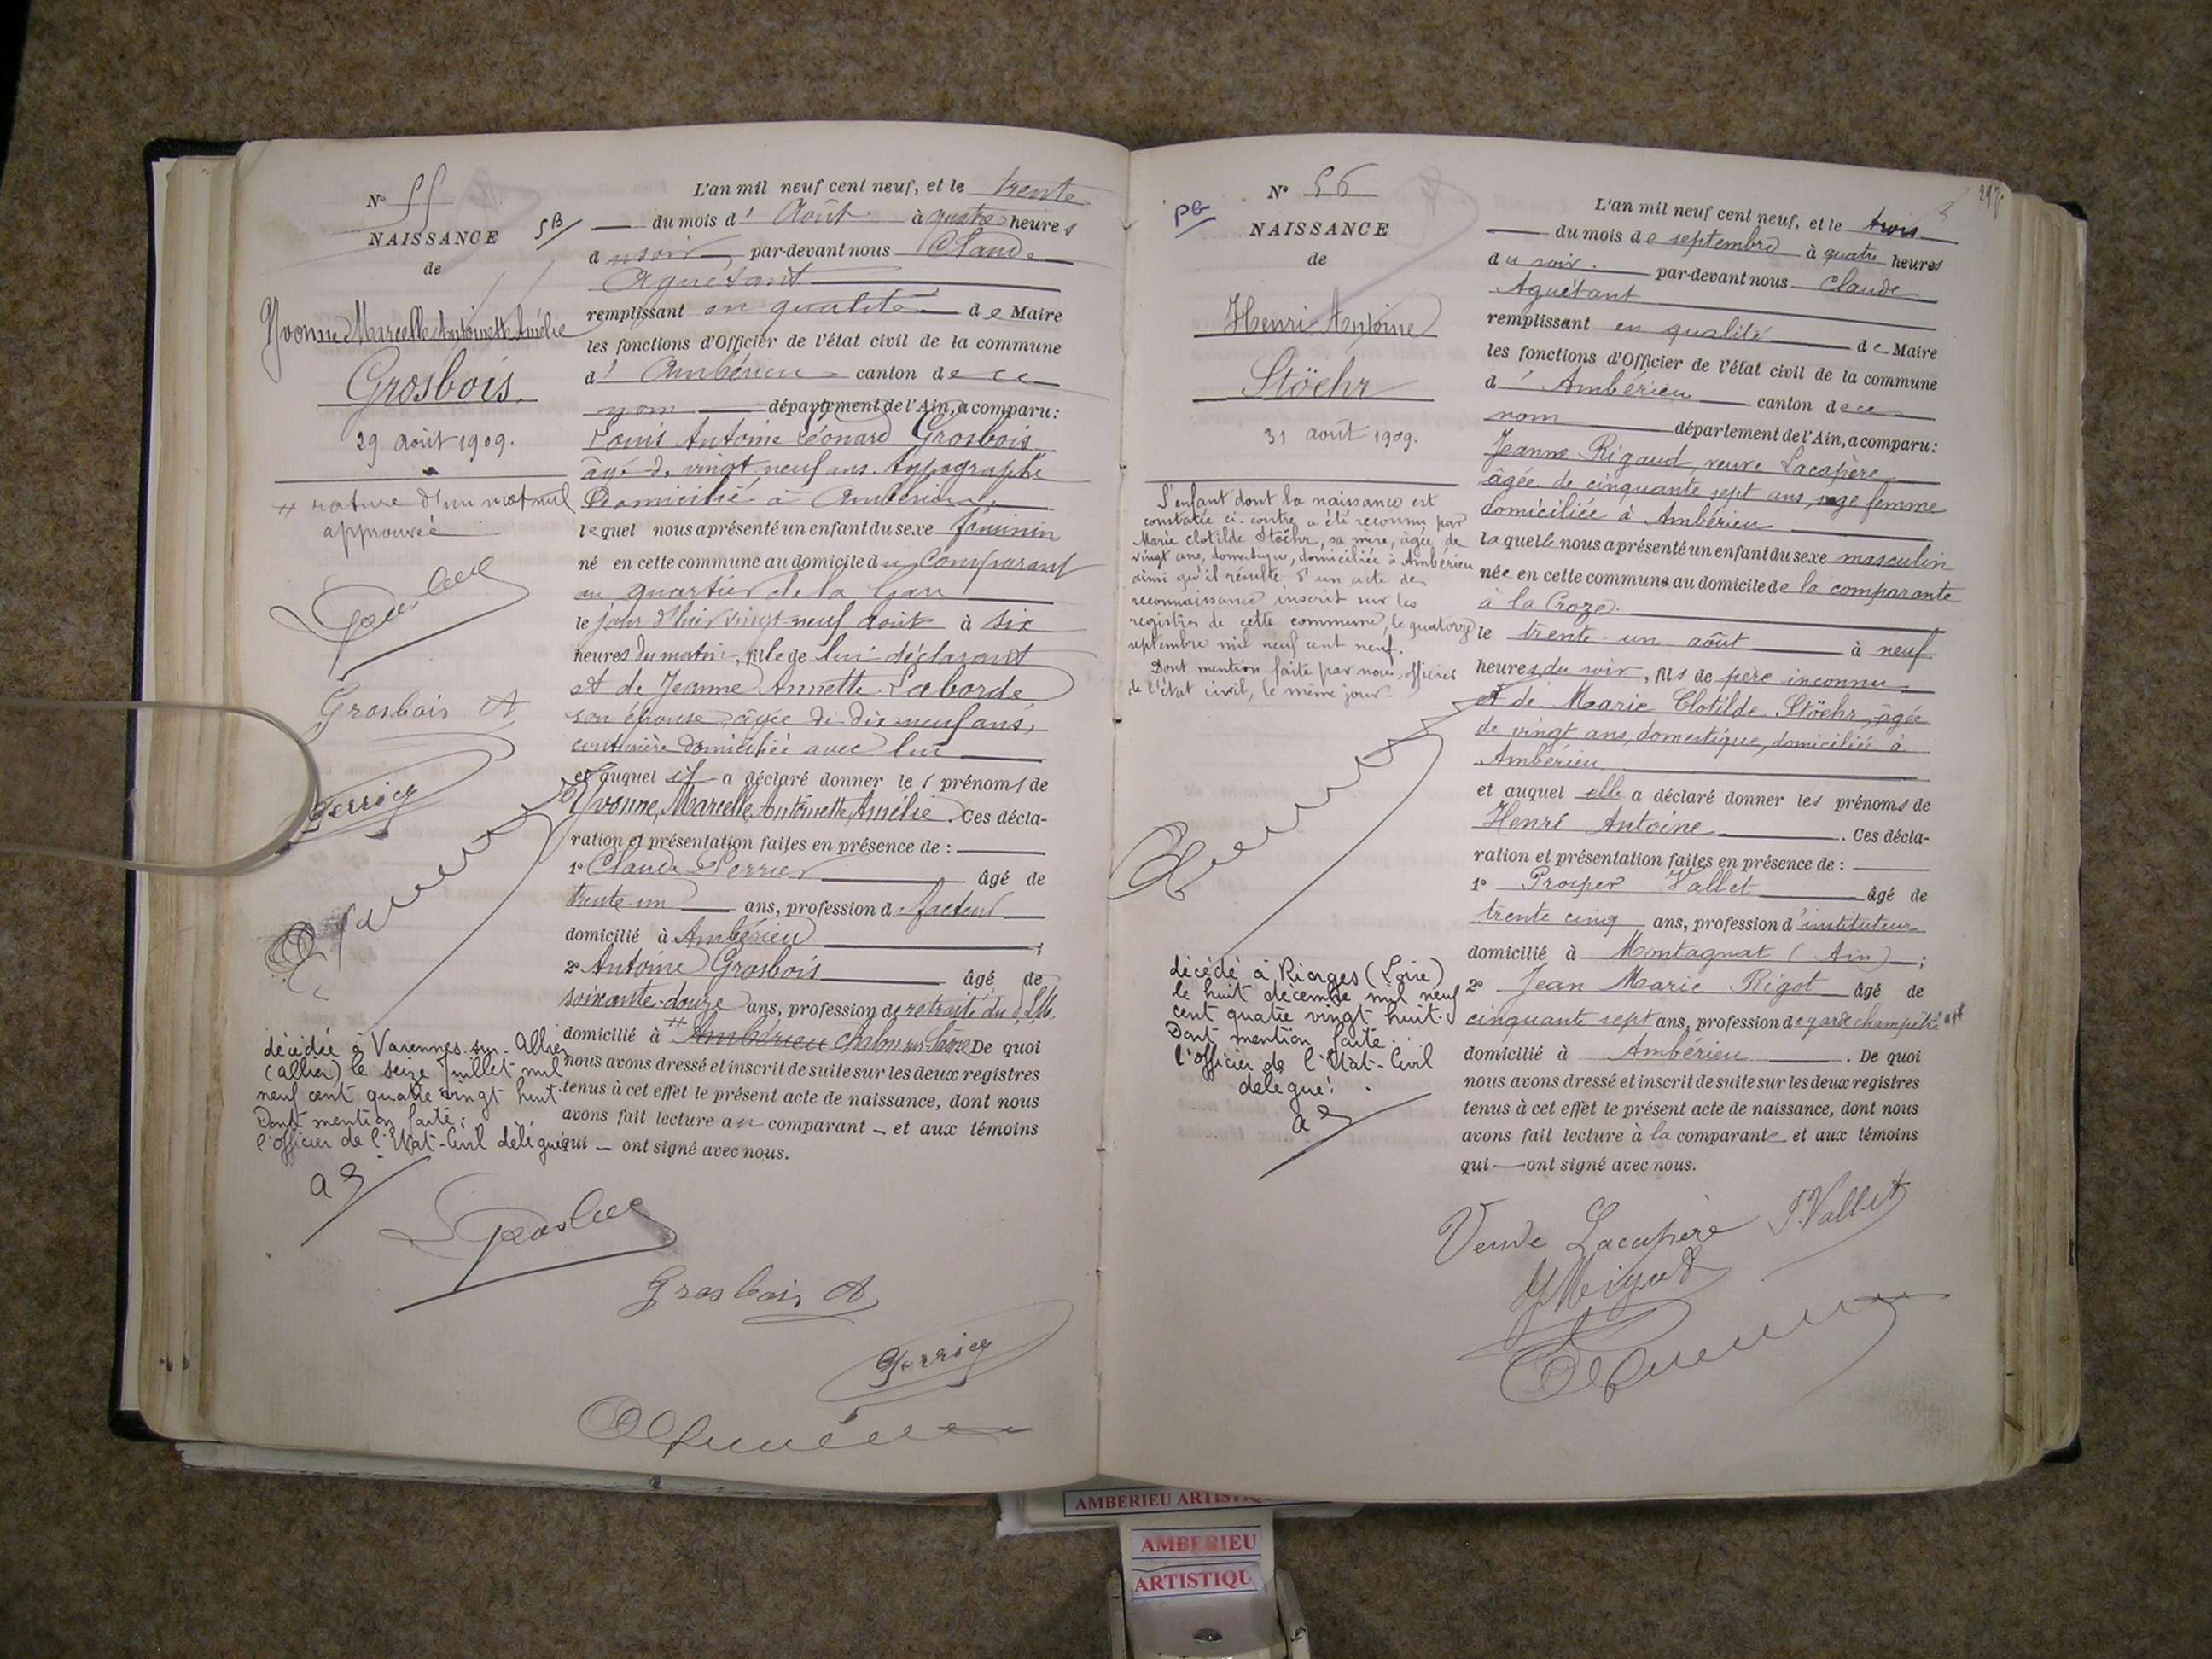 N° 55
NAISSANCE
de
Yvonne Marcelle Antoinette Amélie
Grosbois.
29 août 1909.
# rature d'un mot nul
approuvée
Grosbois A
Perrier
décédée à Varennes-sur-Allier
(Allier) le seize Juillet mil
neuf cent quatre vingt huit.
Dont mention faite :
l'officier de l'Etat-Civil délégué
L'an mil neuf cent neuf, et le trente
du mois d' Août à quatre heures
du soir, par-devant nous Claude
Aguétant
remplissant en qualité de Maire
les fonctions d'Officier de l'état civil de la commune
d' Ambérieu canton de ce
nom département de l'Ain, a comparu :
Louis Antoine Léonard Grosbois
âgé de vingt neuf ans, typographe
Domicilié à Ambérieu,
lequel nous a présenté un enfant du sexe féminin
né en cette commune au domicile du comparant
au quartier de la Gare
le jour d'hier vingt-neuf août à six
heures du matin, fille de lui déclarant
et de Jeanne Annette Laborde
son épouse, âgée de dix neuf ans,
couturière domiciliée avec lui
et auquel il a déclaré donner les prénoms de
Yvonne, Marcelle, Antoinette, Amélie. Ces décla-
ration et présentation faites en présence de :
1° Claude Perrier âgé de
trente-un ans, profession de facteur
domicilié à Ambérieu ;
2° Antoine Grosbois âgé de
soixante-douze ans, profession de retraité du P.L.M.
domicilié à # Ambérieu Chalon sur Saône De quoi
nous avons dressé et inscrit de suite sur les deux registres
tenus à cet effet le présent acte de naissance, dont nous
avons fait lecture au comparant et aux témoins
qui ont signé avec nous.
Grosbois
Grosbois A
Perrier
N° 56
NAISSANCE
de
Henri Antoine
Stöehr
31 août 1909.
L'enfant dont la naissance est
constatée ci-contre a été reconnu par
Marie Clotilde Stöehr, sa mère, âgée de
vingt ans, domestique, domiciliée à Ambérieu
ainsi qu'il résulte d'un acte de
reconnaissance inscrit sur les
registres de cette commune, le quatorze
septembre mil neuf cent neuf.
Dont mention faite par nous, officier
de l'état civil, le même jour.
décédé à Riorges (Loire)
le huit décembre mil neuf
cent quatre vingt huit.
Dont mention faite.
l'officier de l'Etat-Civil
délégué.
L'an mil neuf cent neuf, et le trois
du mois de septembre à quatre heures
du soir. par-devant nous Claude
Aguétant
remplissant en qualité de Maire
les fonctions d'Officier de l'état civil de la commune
d' Ambérieu canton de ce
nom département de l'Ain, a comparu :
Jeanne Rigaud, veuve Lacapère
âgée de cinquante sept ans, sage femme
domiciliée à Ambérieu
laquelle nous a présenté un enfant du sexe masculin
née en cette commune au domicile de la comparante
à la Croze.
le trente-un août à neuf
heures du soir, fils de père inconnu
et de Marie Clotilde Stöehr, âgée
de vingt ans, domestique, domiciliée à
Ambérieu
et auquel elle a déclaré donner les prénoms de
Henri Antoine. Ces décla-
ration et présentation faites en présence de :
1° Prosper Vallet âgé de
trente cinq ans, profession d'instituteur
domicilié à Montagnat (Ain) ;
2° Jean Marie Rigot âgé de
cinquante sept ans, profession de garde champêtre
domicilié à Ambérieu. De quoi
nous avons dressé et inscrit de suite sur les deux registres
tenus à cet effet le présent acte de naissance, dont nous
avons fait lecture à la comparante et aux témoins
qui ont signé avec nous.
Veuve Lacapère P. Vallet
AMBERIEU
AMBERIEU
ARTISTIQU